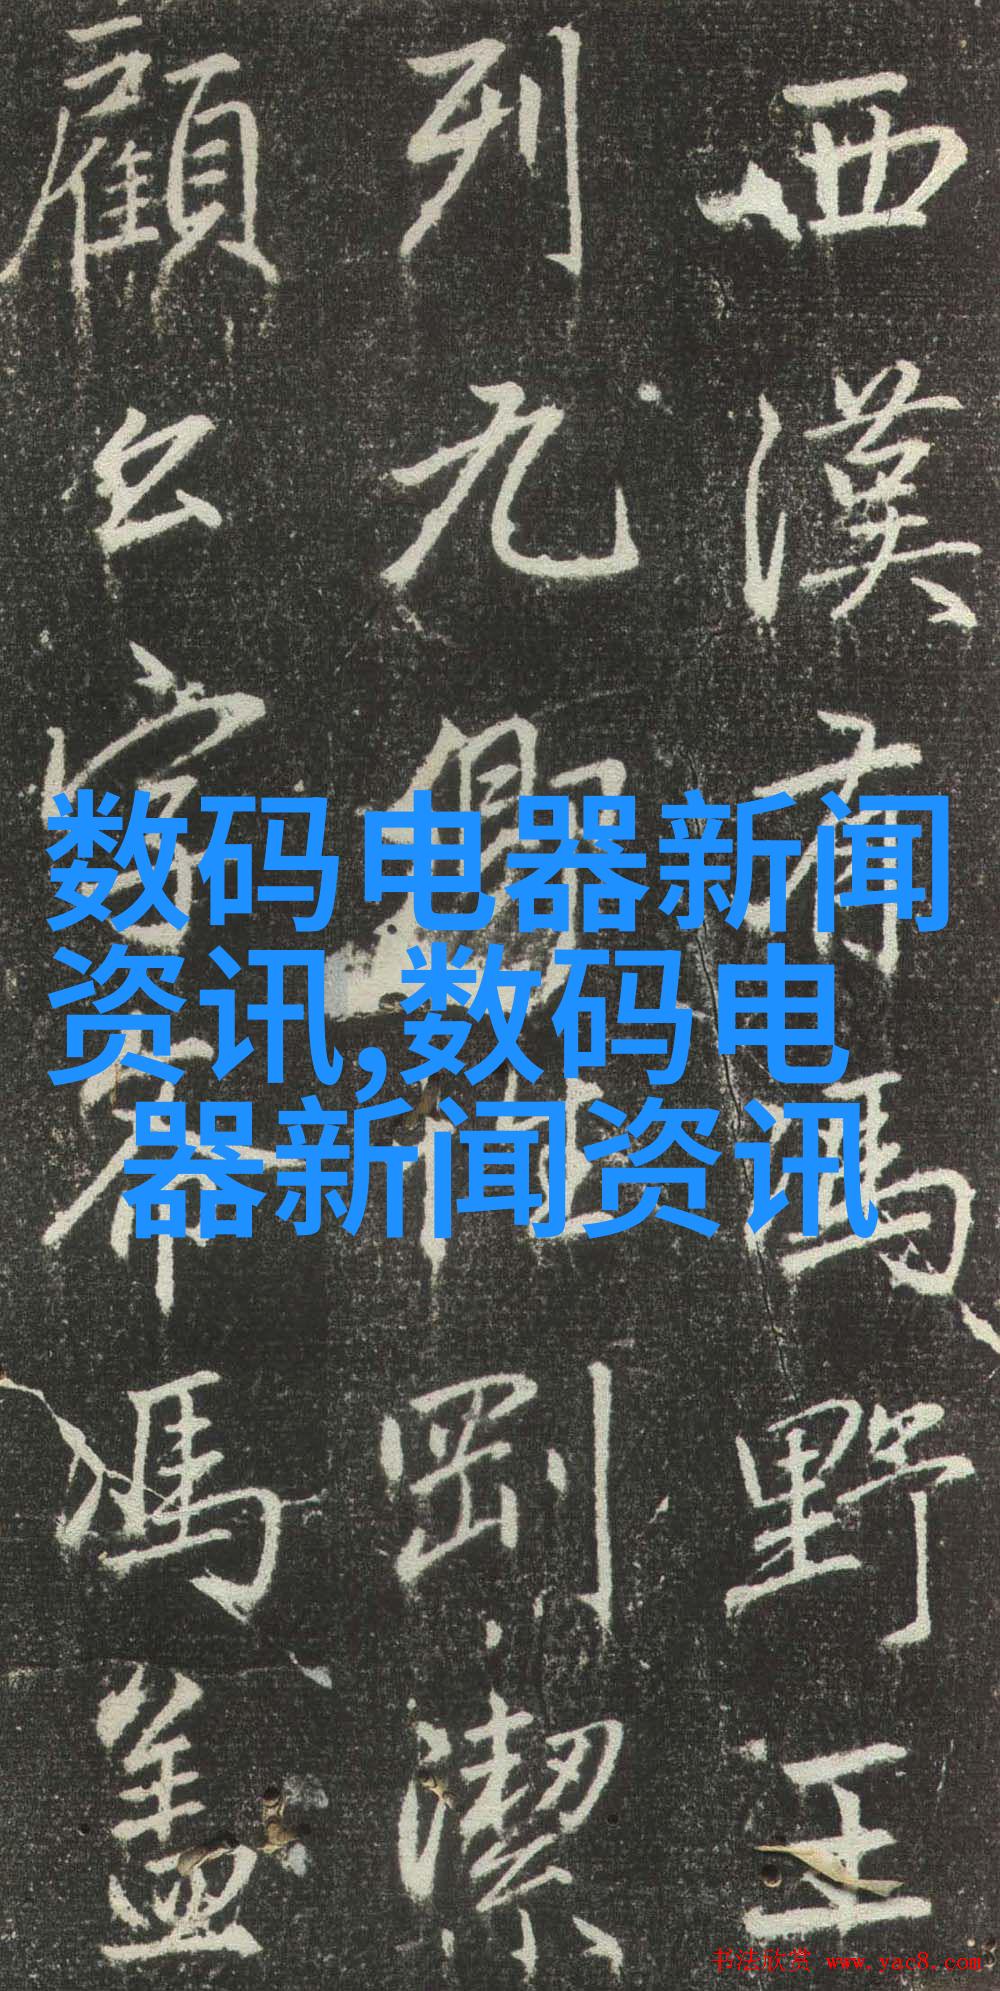 西漢有馮野王
列九卿剛潔
顧馮盖
数码电器新闻
资讯,数码电
器新闻资讯
书法欣赏 www.yac8.com